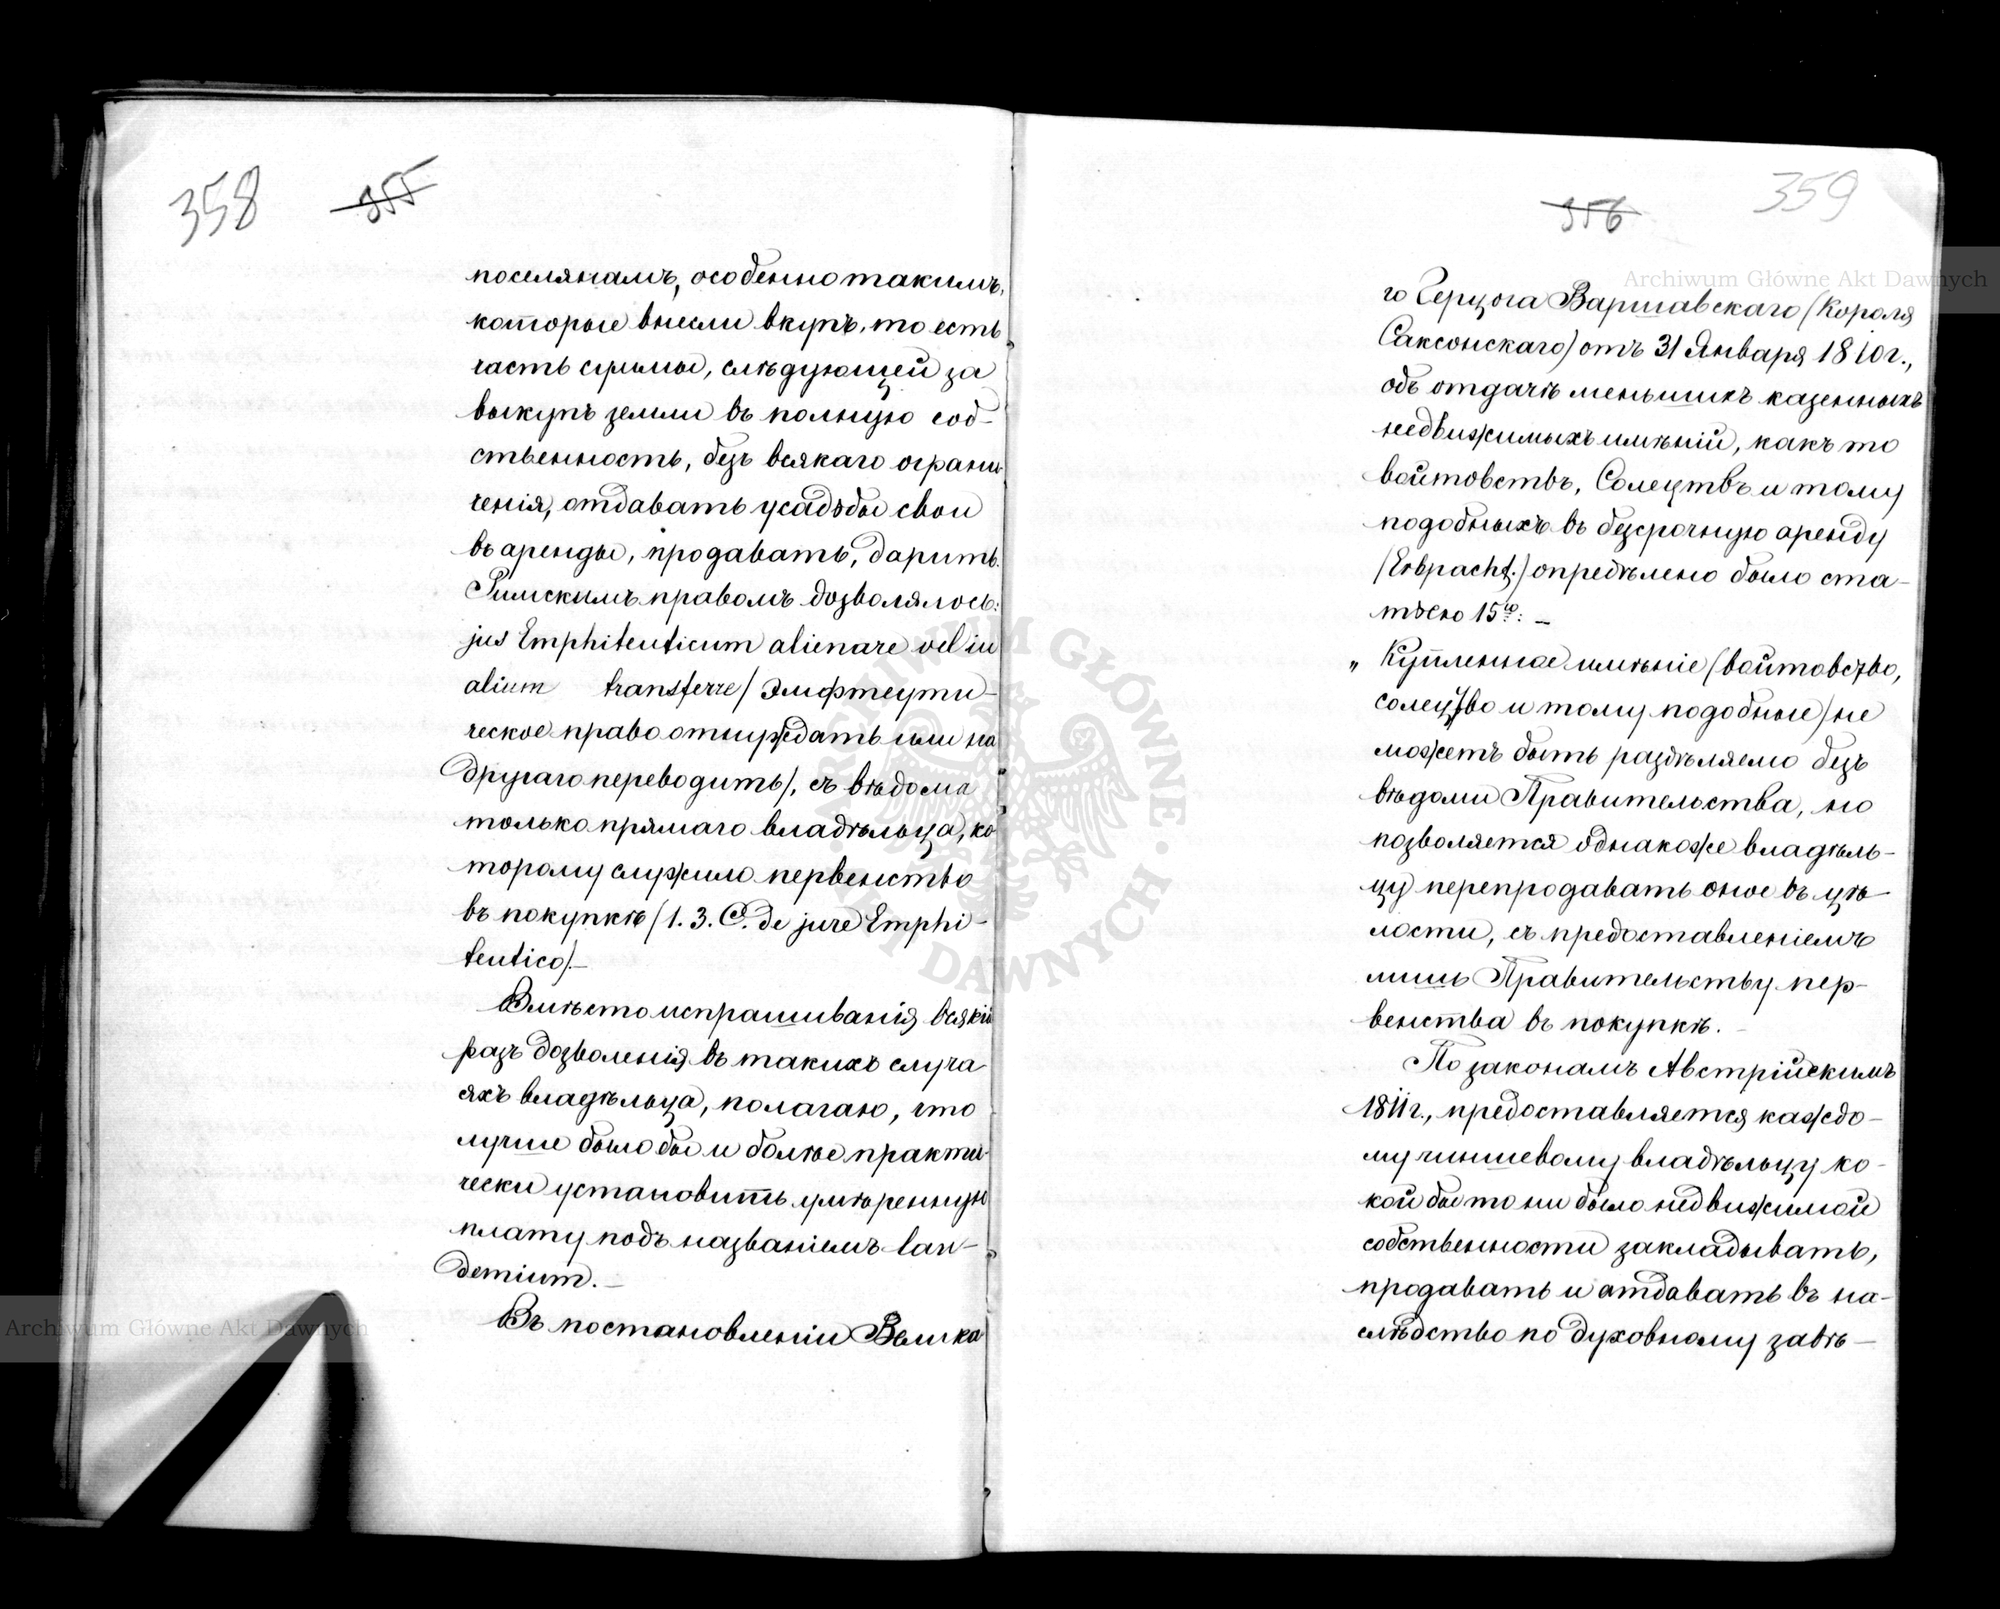 358 355
поселянамъ, особенно такимъ,
которые внесли вкупъ, то есть
часть суммы, слѣдующей за
выкупъ земли въ полную соб-
ственность, безъ всякаго ограни
ченія, отдавать усадьбы свои
въ аренды, продавать, дарить.
Римскимъ правомъ дозволялось:
jus Emphiteuticum alienare vel in
alium transferre / Эмфтеути-
ческое право отчуждать или на
другаго переводить /, съ вѣдома
только прямаго владѣльца, ко
торому служило первенство
въ покупкѣ / 1. 3. C. de jure Emphi-
teutico /.—
Вмѣсто испрашиванія всякій
разъ дозволенія въ такихъ случа
яхъ владѣльца, полагаю, что
лучше было бы и болѣе практи-
чески установить умѣренную
плату подъ названіемъ lau-
demium. —
Въ постановленіи Велика
356 359
го Герцога Варшавскаго / Короля
Саксонскаго / отъ 31 Января 1810 г.,
объ отдачѣ меньшихъ казенныхъ
недвижимыхъ имѣній, какъ то
войтовствъ, Солецтвъ и тому
подобныхъ въ безсрочную аренду
/ Erbpacht. / опредѣлено было ста-
тьею 15ю: —
„ Купленное имѣніе / войтовство,
солецтво и тому подобные / не
можетъ быть раздѣляемо безъ
вѣдома Правительства, но
позволяется однакоже владѣль-
цу перепродавать оное въ цѣ-
лости, съ предоставленіемъ
лишь Правительству пер-
венства въ покупкѣ. —
По законамъ Австрійскимъ
1811 г., предоставляется каждо-
му чиншевому владѣльцу ко-
кой бы то ни было недвижимой
собственности закладывать,
продавать и отдавать въ на-
слѣдство по духовному завѣ-
Archiwum Główne Akt Dawnych
Archiwum Główne Akt Dawnych
ARCHIWUM GŁÓWNE · AKT DAWNYCH ·